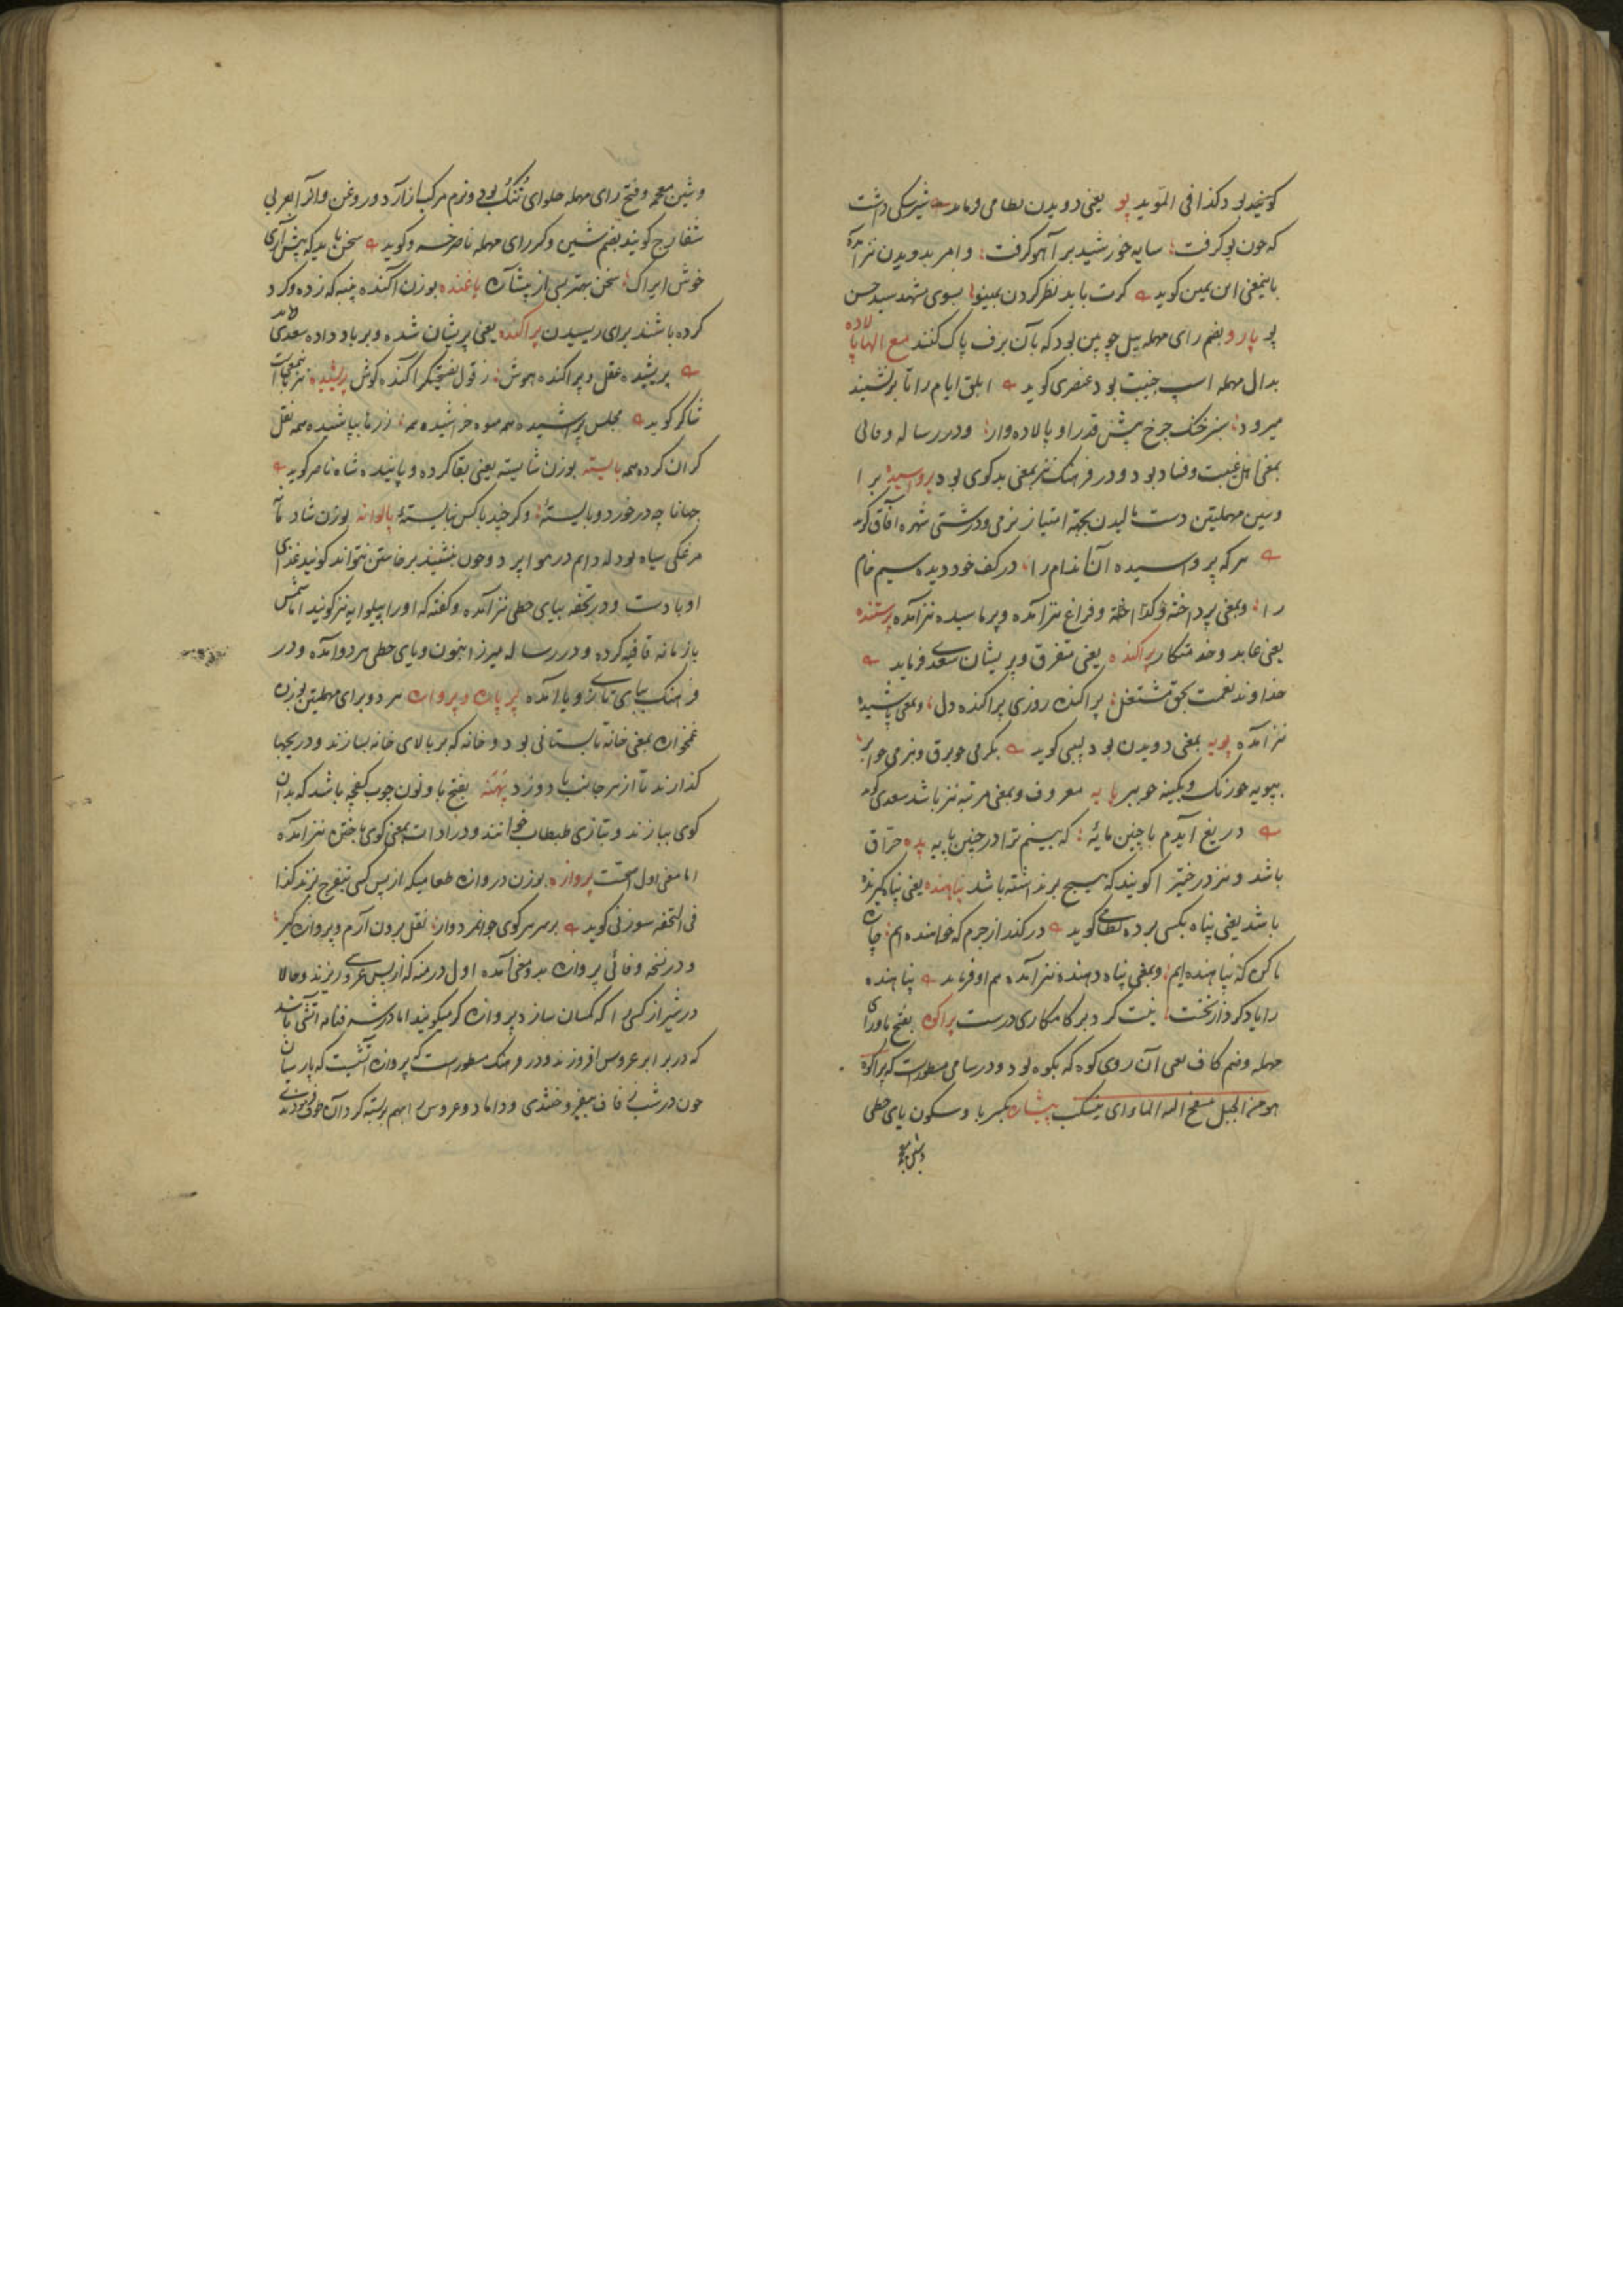 گویند بود کذا فی المؤید پو یعنی دویدن نظامی فرماید شیر سگی داشت
که چون پو گرفت سایه خورشید بر آهو گرفت و امر بدویدن نیز آمده
باینمعنی ابن یمین گوید گرت باید نظر کردن بمینو بسوی مشهد سید حسن
پو پارو بضم رای مهمله بیل چوبین بود که بآن برف پاک کنند مع الها پالاده
بدال مهمله اسپ جنیبت بود عنصری گوید ابلق ایام را تا برنشیند
میرود سبز خنگ چرخ پیش قدر او پالاده وار و در رساله وفائی
بمعنی اهل غیبت و فساد بود و در فرهنگ نیز بمعنی بدگوی بود پرواسیده برا
وسین مهملتین دست مالیدن بجهة امتیاز نرمی و درشتی شهره آفاق گوید
هر که پرواسیده آن اندام را در کف خود دیده سیم خام
را و بمعنی پرداخته و فراغ نیز آمده و پرماسیده نیز آمده پرستنده
یعنی عابد و خدمتکار پراکنده یعنی متفرق و پریشان سعدی فرماید
خداوند نعمت بحق مشتغل پراکنده روزی پراکنده دل و بمعنی پاشیده
نیز آمده پویه بمعنی دویدن بود لبیبی گوید بگرمی چو برق و بنرمی چو ابر
بپویه چو رنگ و بکینه چو ببر پایه معروف و بمعنی مرتبه نیز باشد سعدی گوید
دریغ آیدم با چنین مایهٔ که بینم ترا در چنین پایهٔ پده حرّاق
باشد و نیز درختیرا گویند که هیچ بر نداشته باشد پناهنده یعنی پناه گیرنده
باشد یعنی پناه بکسی برده نظامی گوید در گذر از جرم که خواهنده ایم چاره
ما کن که پناهنده ایم و بمعنی پناه دهنده نیز آمده هم او فرماید پناهنده
را یاد کرد از نخست نیت کرد بر کامکاری درست پراکوه بفتح با و رای
مهمله و ضم کاف یعنی آن روی کوه که بکوه بود و در سامی مسطور است که پراکوه
هو من الجبل سفح الیه الماء ای ینسکب پیشاره بکسر با و سکون یای حطی
وشین معجمه
وشین معجمه و فتح رای مهمله حلوای تنک بود و نرم مرکب از آرد و روغن و آنرا بعربی
شفارج گویند بضم شین و کسر رای مهمله ناصر خسرو گوید سخن باید که پیش آری
خوش ایراک سخن بهتر بسی از پیشاره پاغنده بوزن آکنده پنبه که زده و گرد
کرده باشند برای ریسیدن پراکنده یعنی پریشان شده و بر باد داده سعدی گوید
پریشیده عقل و پراکنده هوش ز قول نصیحتگر آکنده گوش پریشیده نیز بمعنی است
شاکر گوید مجلس پراشیده همه میوه خراشیده همه زرها بپاشیده همه نقل
کران کرده همه پایسته بوزن شایسته یعنی بقا کرده و پاینده شاه ناصر گوید
جهانا چه درخورد و بایستهٔ و گر چند با کس نپایستهٔ پالوانه بوزن شادمانه
مرغکی سیاه بود که دایم در هوا پرد و چون بنشیند برخاستن نتواند گویند غذای
او باد است و در تحفه بیای حطی نیز آمده و گفته که او را پیلوایه نیز گویند اما شمس
با زمانه قافیه کرده و در رساله میرزا بنون و یای حطی هر دو آمده و در
فرهنگ بیای تازی و با آمده پرپاره و پرواره هر دو برای مهملتین بوزن
غمخواره بمعنی خانه تابستانی بود و خانه که بر بالای خانه بسازند و دریچها
گذارند تا از هر جانب باد وزد پهنه بفتح با و نون چوب کفچه باشد که بدان
گوی ببازند و بتازی طبطاب خوانند و در ادات بمعنی گوی باختن نیز آمده
اما معنی اول اصح است پروازه بوزن دروازه طعامیکه از پس کسی بتفرج برند کذا
فی التحفه سوزنی گوید بر سر هر کوی جوانمردوار نقل برون آرم و پروازه گیر
و در نسخه وفائی پروازه بدو معنی آمده اول درمنه که از پس عروس ریزند و حالا
در شیراز کسی را که کسان سازد پروازه گر میگویند اما در شرفنامه آتشی باشد
که در برابر عروس افروزند و در فرهنگ مسطور است که پروازه آتشیست که پارسیان
چون در شب زفاف میفروختندی و داماد و عروس را بهم بر بسته گرد آن طوف فرمودندی